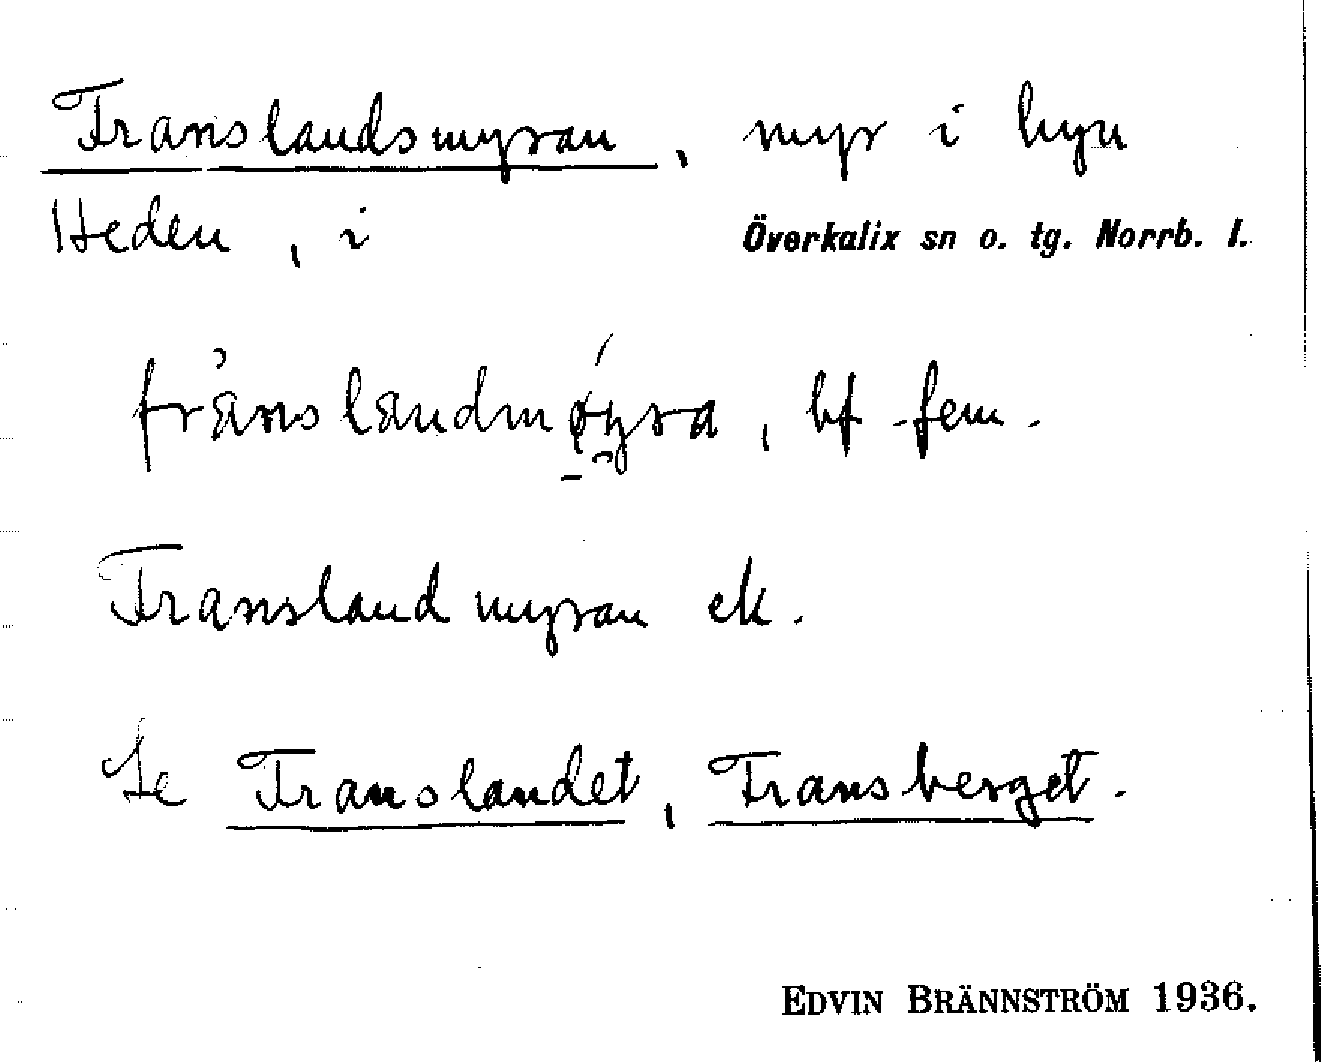 Translandsmyran, myr i byn
Heden, i Överkalix sn o. tg. Norrb. l.
tránslandmǿyra, bf. fem.
Translandmyran ek.
Se Translandet, Transberget.
EDVIN BRÄNNSTRÖM 1936.